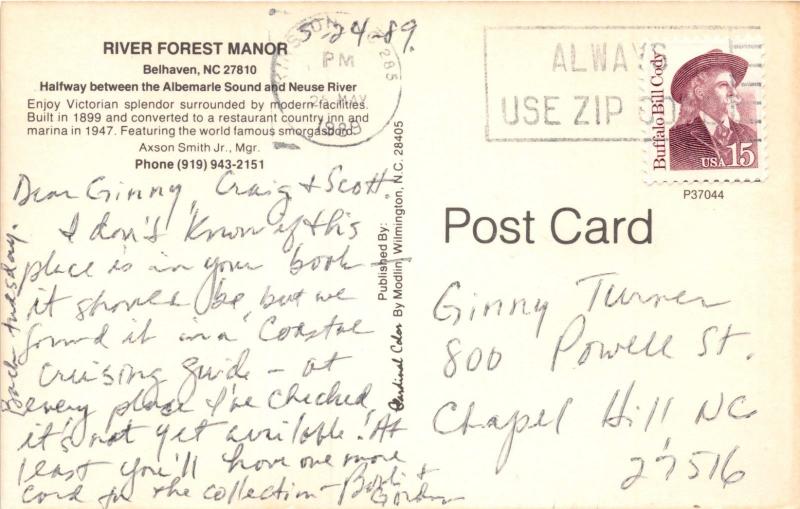 RIVER FOREST MANOR
Belhaven, NC 27810
Halfway between the Albemarle Sound and Neuse River
Enjoy Victorian splendor surrounded by modern facilities.
Built in 1899 and converted to a restaurant country inn and
marina in 1947. Featuring the world famous smorgasbord.
Axson Smith Jr., Mgr.
Phone (919) 943-2151
5-24-89
PM
MAY
1989
285
Dear Ginny, Craig & Scott
I don't know if this
place is in your book -
it should be, but we
found it in a Coastal
Cruising guide - at
every place I've checked,
it's not yet available. At
least you'll have one more
card for the collection - &
Gordon
Back Tuesday.
Published By:
Cardinal Color By Modlin, Wilmington, N.C. 28405
ALWAYS
USE ZIP
Buffalo Bill Cody
USA 15
P37044
Post Card
Ginny Turner
800 Powell St.
Chapel Hill NC
27516